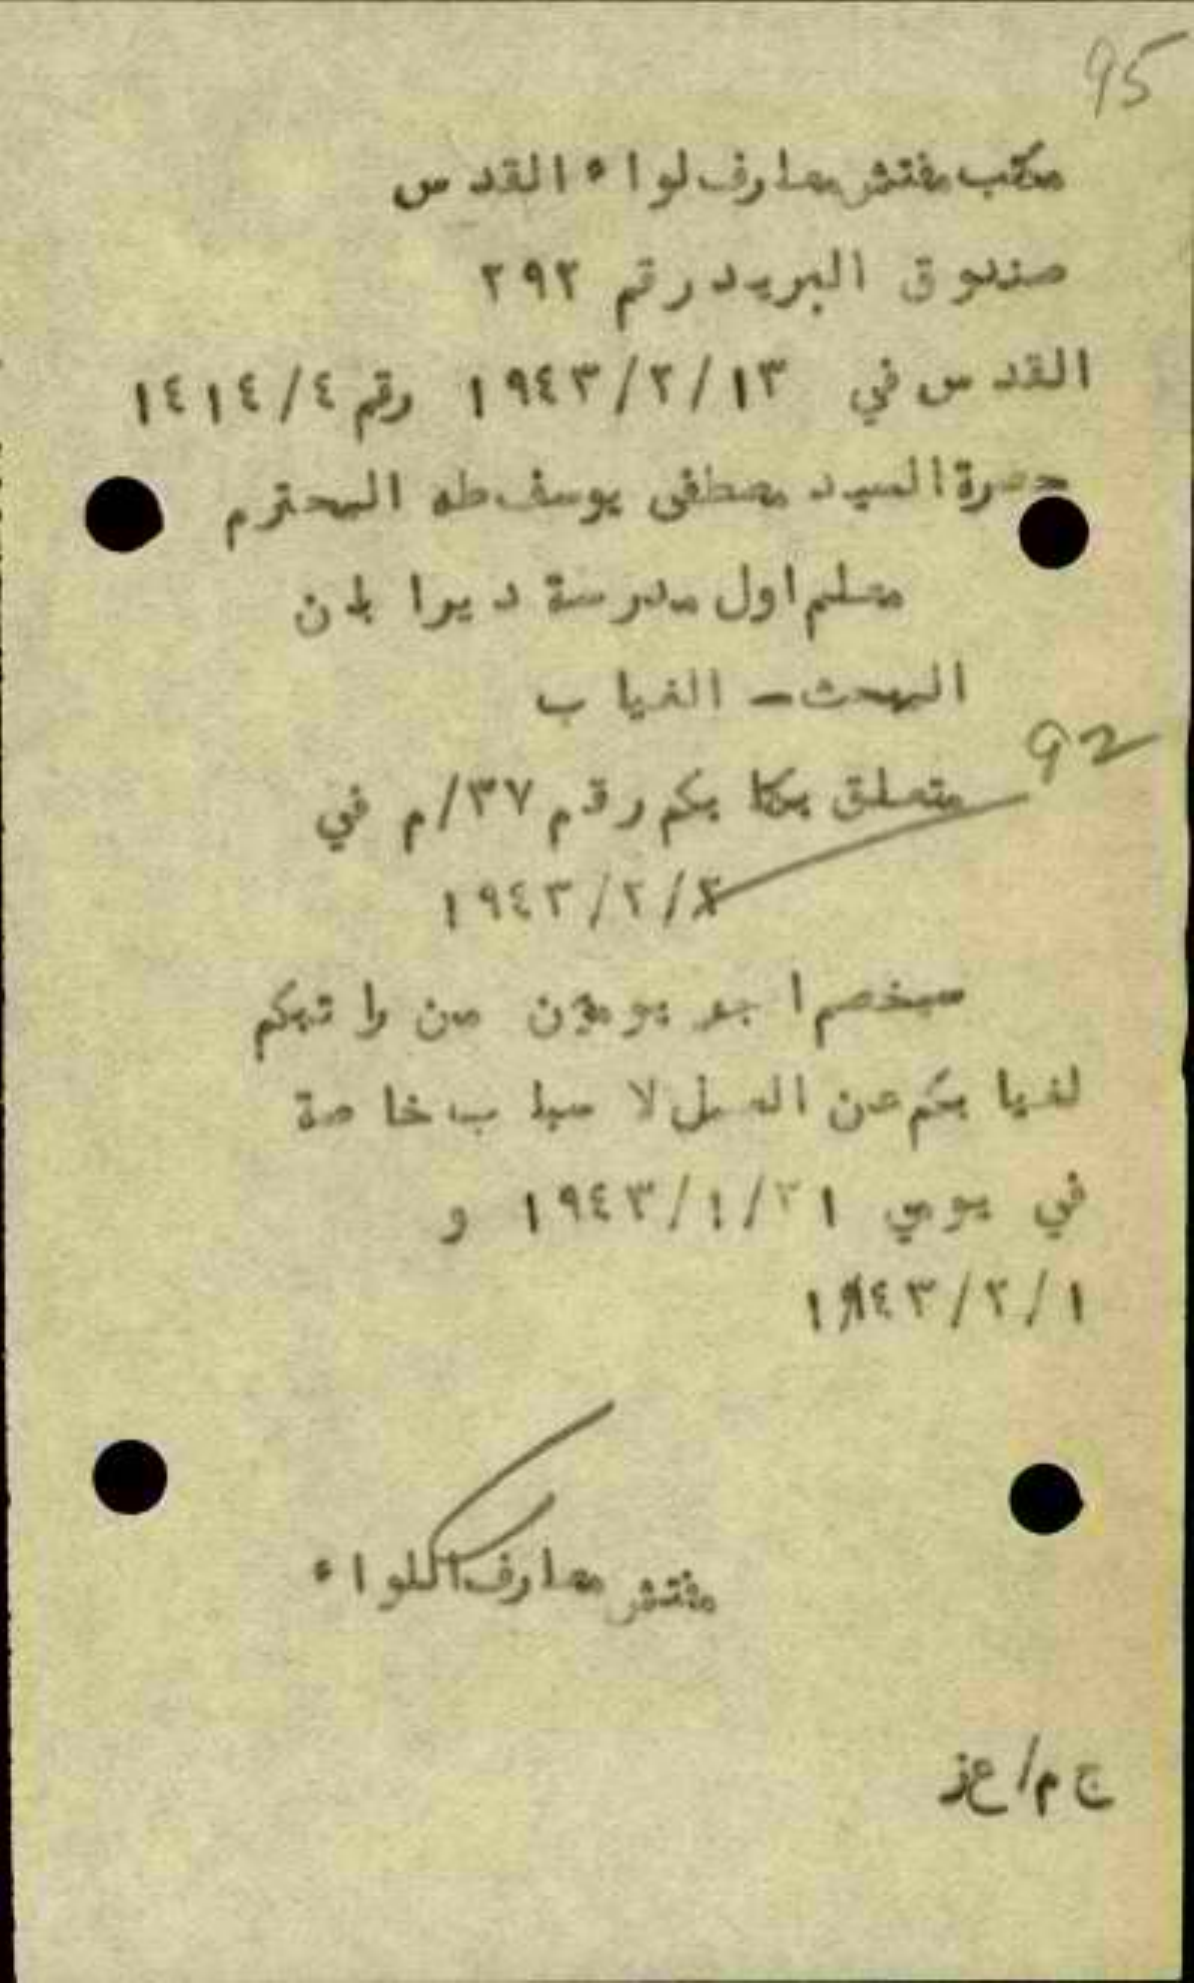 95
مكتب مفتش معارف لواء القدس
صندوق البريد رقم ٢٩٢
القدس في ١٩٤٣/٢/١٣ رقم ١٤١٤/٤
حضرة السيد مصطفى يوسف طه المحترم
معلم اول مدرسة ديرابان
البحث - الغياب
92
متعلق بكتابكم رقم ٣٧/م في
١٩٤٣/٢/٢
سيخصم اجر يومين من راتبكم
لغيابكم عن العمل لاسباب خاصة
في يومي ١٩٤٣/١/٣١ و
١٩٤٣/٢/١
مفتش معارف اللواء
ج م/ع ز